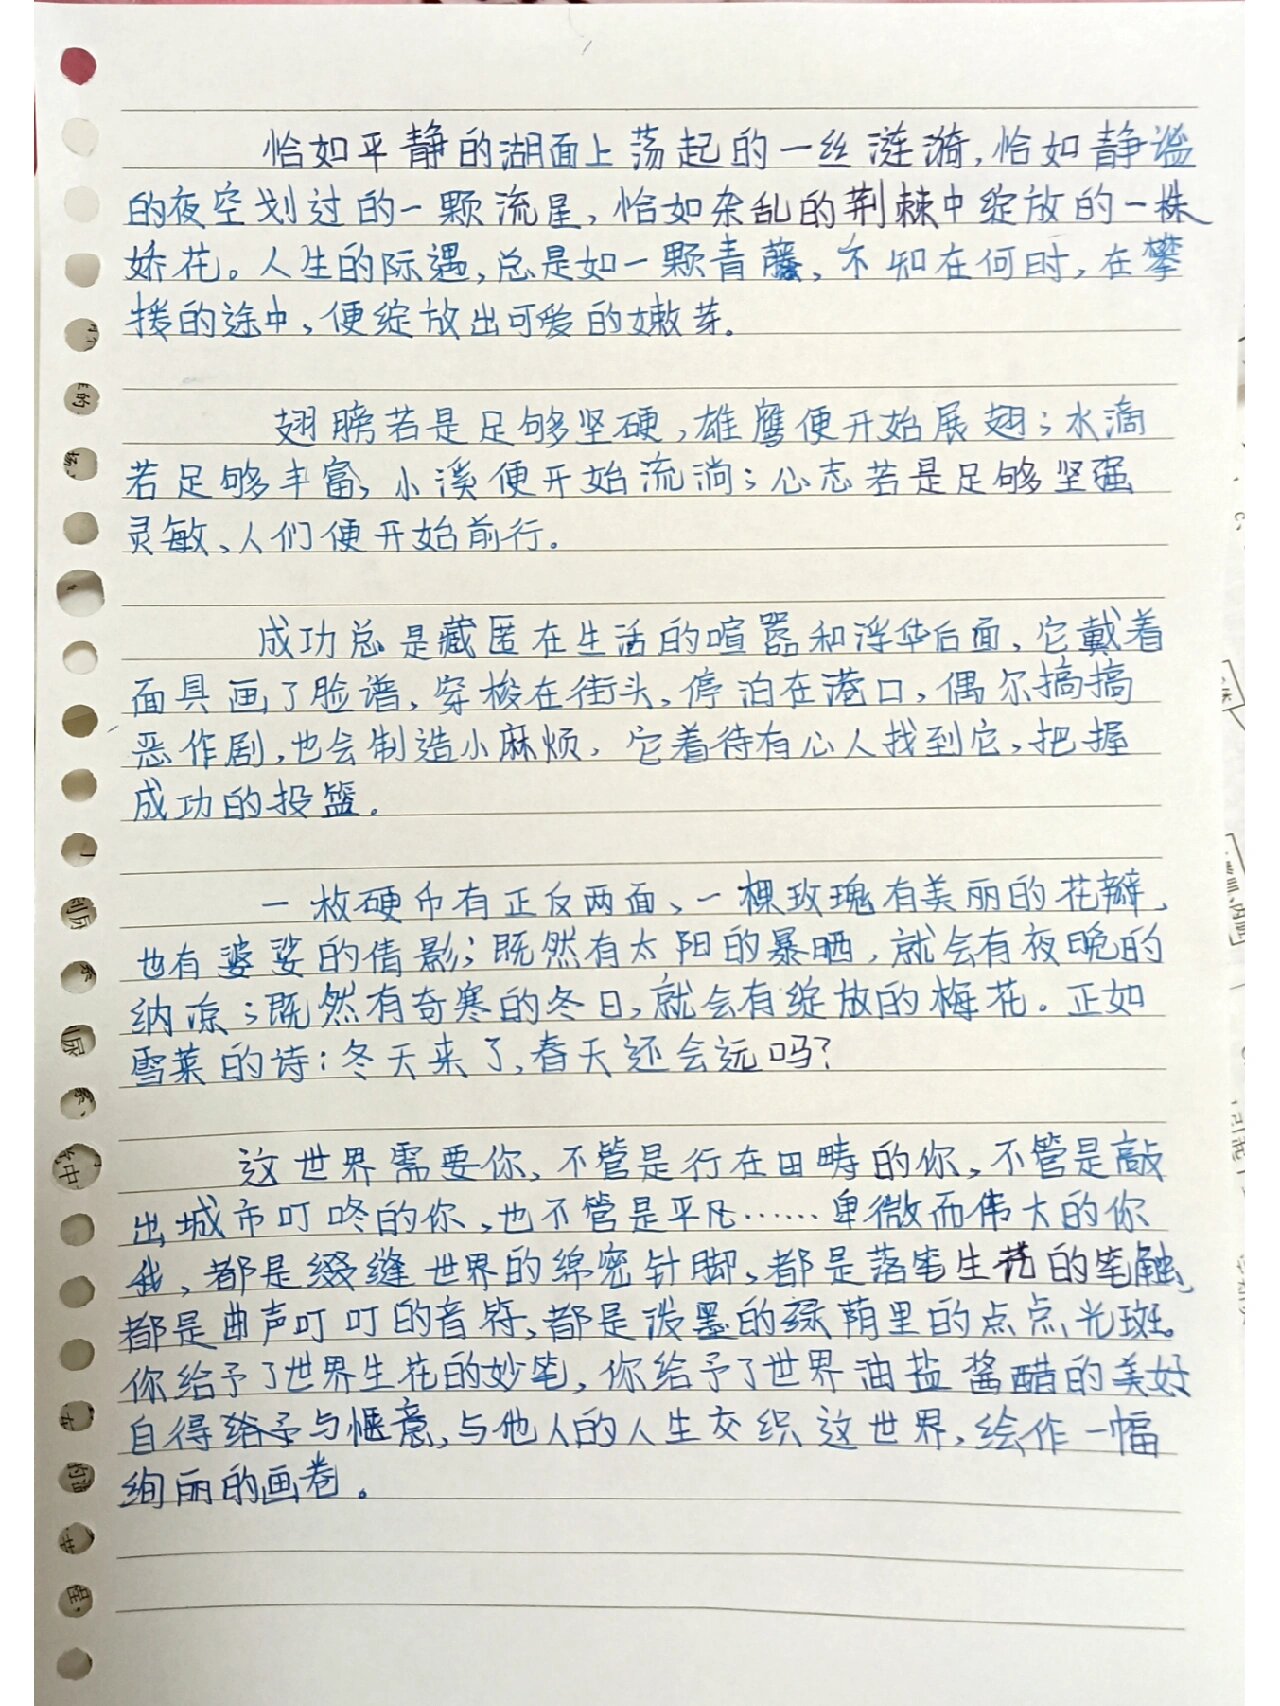 恰如平静的湖面上荡起的一丝涟漪，恰如静谧
的夜空划过的一颗流星，恰如杂乱的荆棘中绽放的一株
娇花。人生的际遇，总是如一颗青藤，不知在何时，在攀
援的途中，便绽放出可爱的嫩芽。
翅膀若是足够坚硬，雄鹰便开始展翅；水滴
若足够丰富，小溪便开始流淌；心志若是足够坚强
灵敏，人们便开始前行。
成功总是藏匿在生活的喧嚣和浮华后面，它戴着
面具画了脸谱，穿梭在街头，停泊在港口，偶尔搞搞
恶作剧，也会制造小麻烦，它着待有心人找到它，把握
成功的投篮。
一枚硬币有正反两面、一棵玫瑰有美丽的花瓣，
也有婆娑的倩影；既然有太阳的暴晒，就会有夜晚的
纳凉；既然有奇寒的冬日，就会有绽放的梅花。正如
雪莱的诗：冬天来了，春天还会远吗？
这世界需要你，不管是行在田畴的你，不管是敲
出城市叮咚的你，也不管是平凡……卑微而伟大的你
我，都是缀缝世界的绵密针脚，都是落笔生花的笔触，
都是曲声叮叮的音符，都是泼墨的绿荫里的点点光斑。
你给予了世界生花的妙笔，你给予了世界油盐酱醋的美好
自得给予与惬意，与他人的人生交织这世界，绘作一幅
绚丽的画卷。